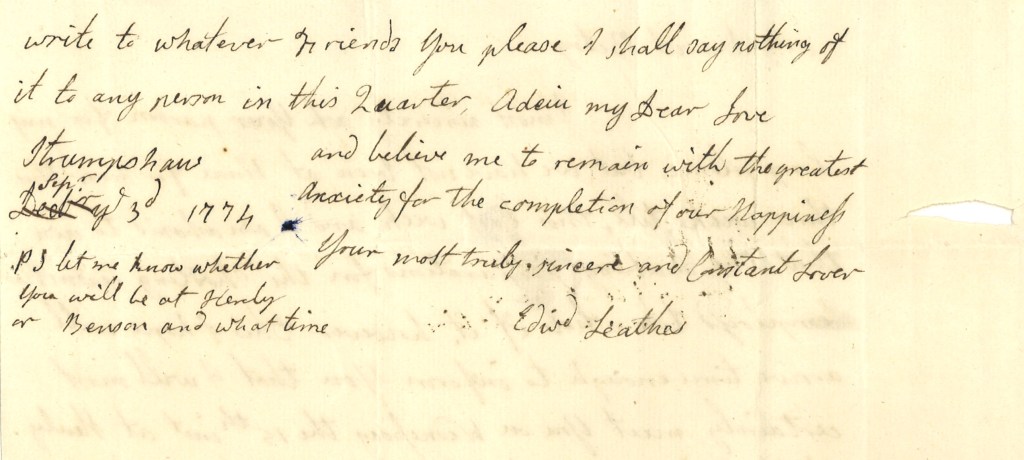 write to whatever Friends you please I shall say nothing of
it to any person in this Quarter, Adeiu my Dear Love
and believe me to remain with the greatest
Anxiety for the completion of our Happiness
Your most truly, sincere and Constant Lover
Edwd Leathes
Strumpshaw
Sepr
ye 3d 1774
PS let me know whether
you will be at Henly
or Benson and what time